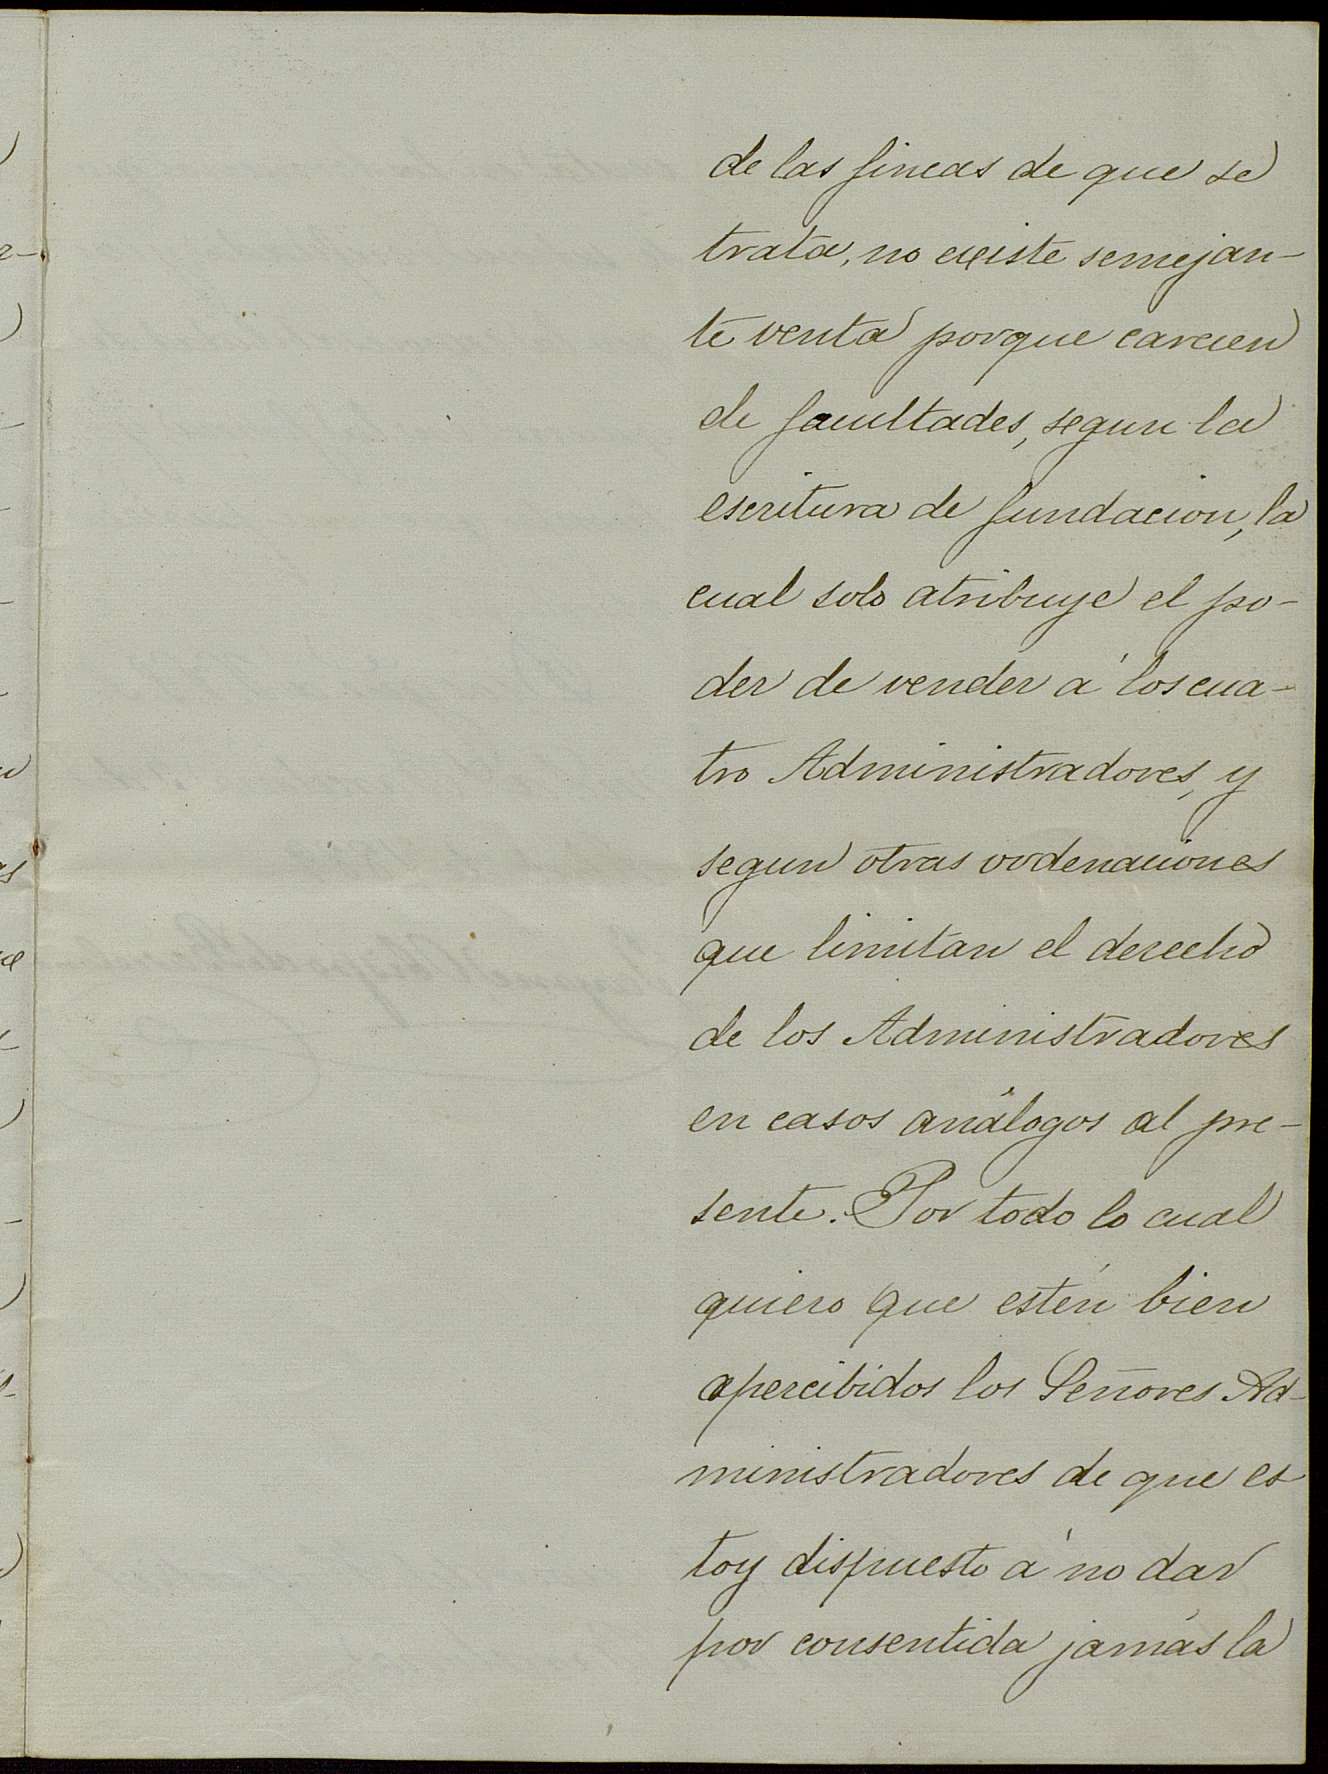 de las fincas de que se
trata, no existe semejan-
te venta porque carecen
de facultades, segun la
escritura de fundacion, la
cual solo atribuye el po-
der de vender á los cua-
tro Administradores, y
segun otras ordenaciones
que limitan el derecho
de los Administradores
en casos análogos al pre-
sente. Por todo lo cual
quiero que estén bien
apercibidos los Señores Ad-
ministradores de que es
toy dispuesto á no dar
por consentida jamás la